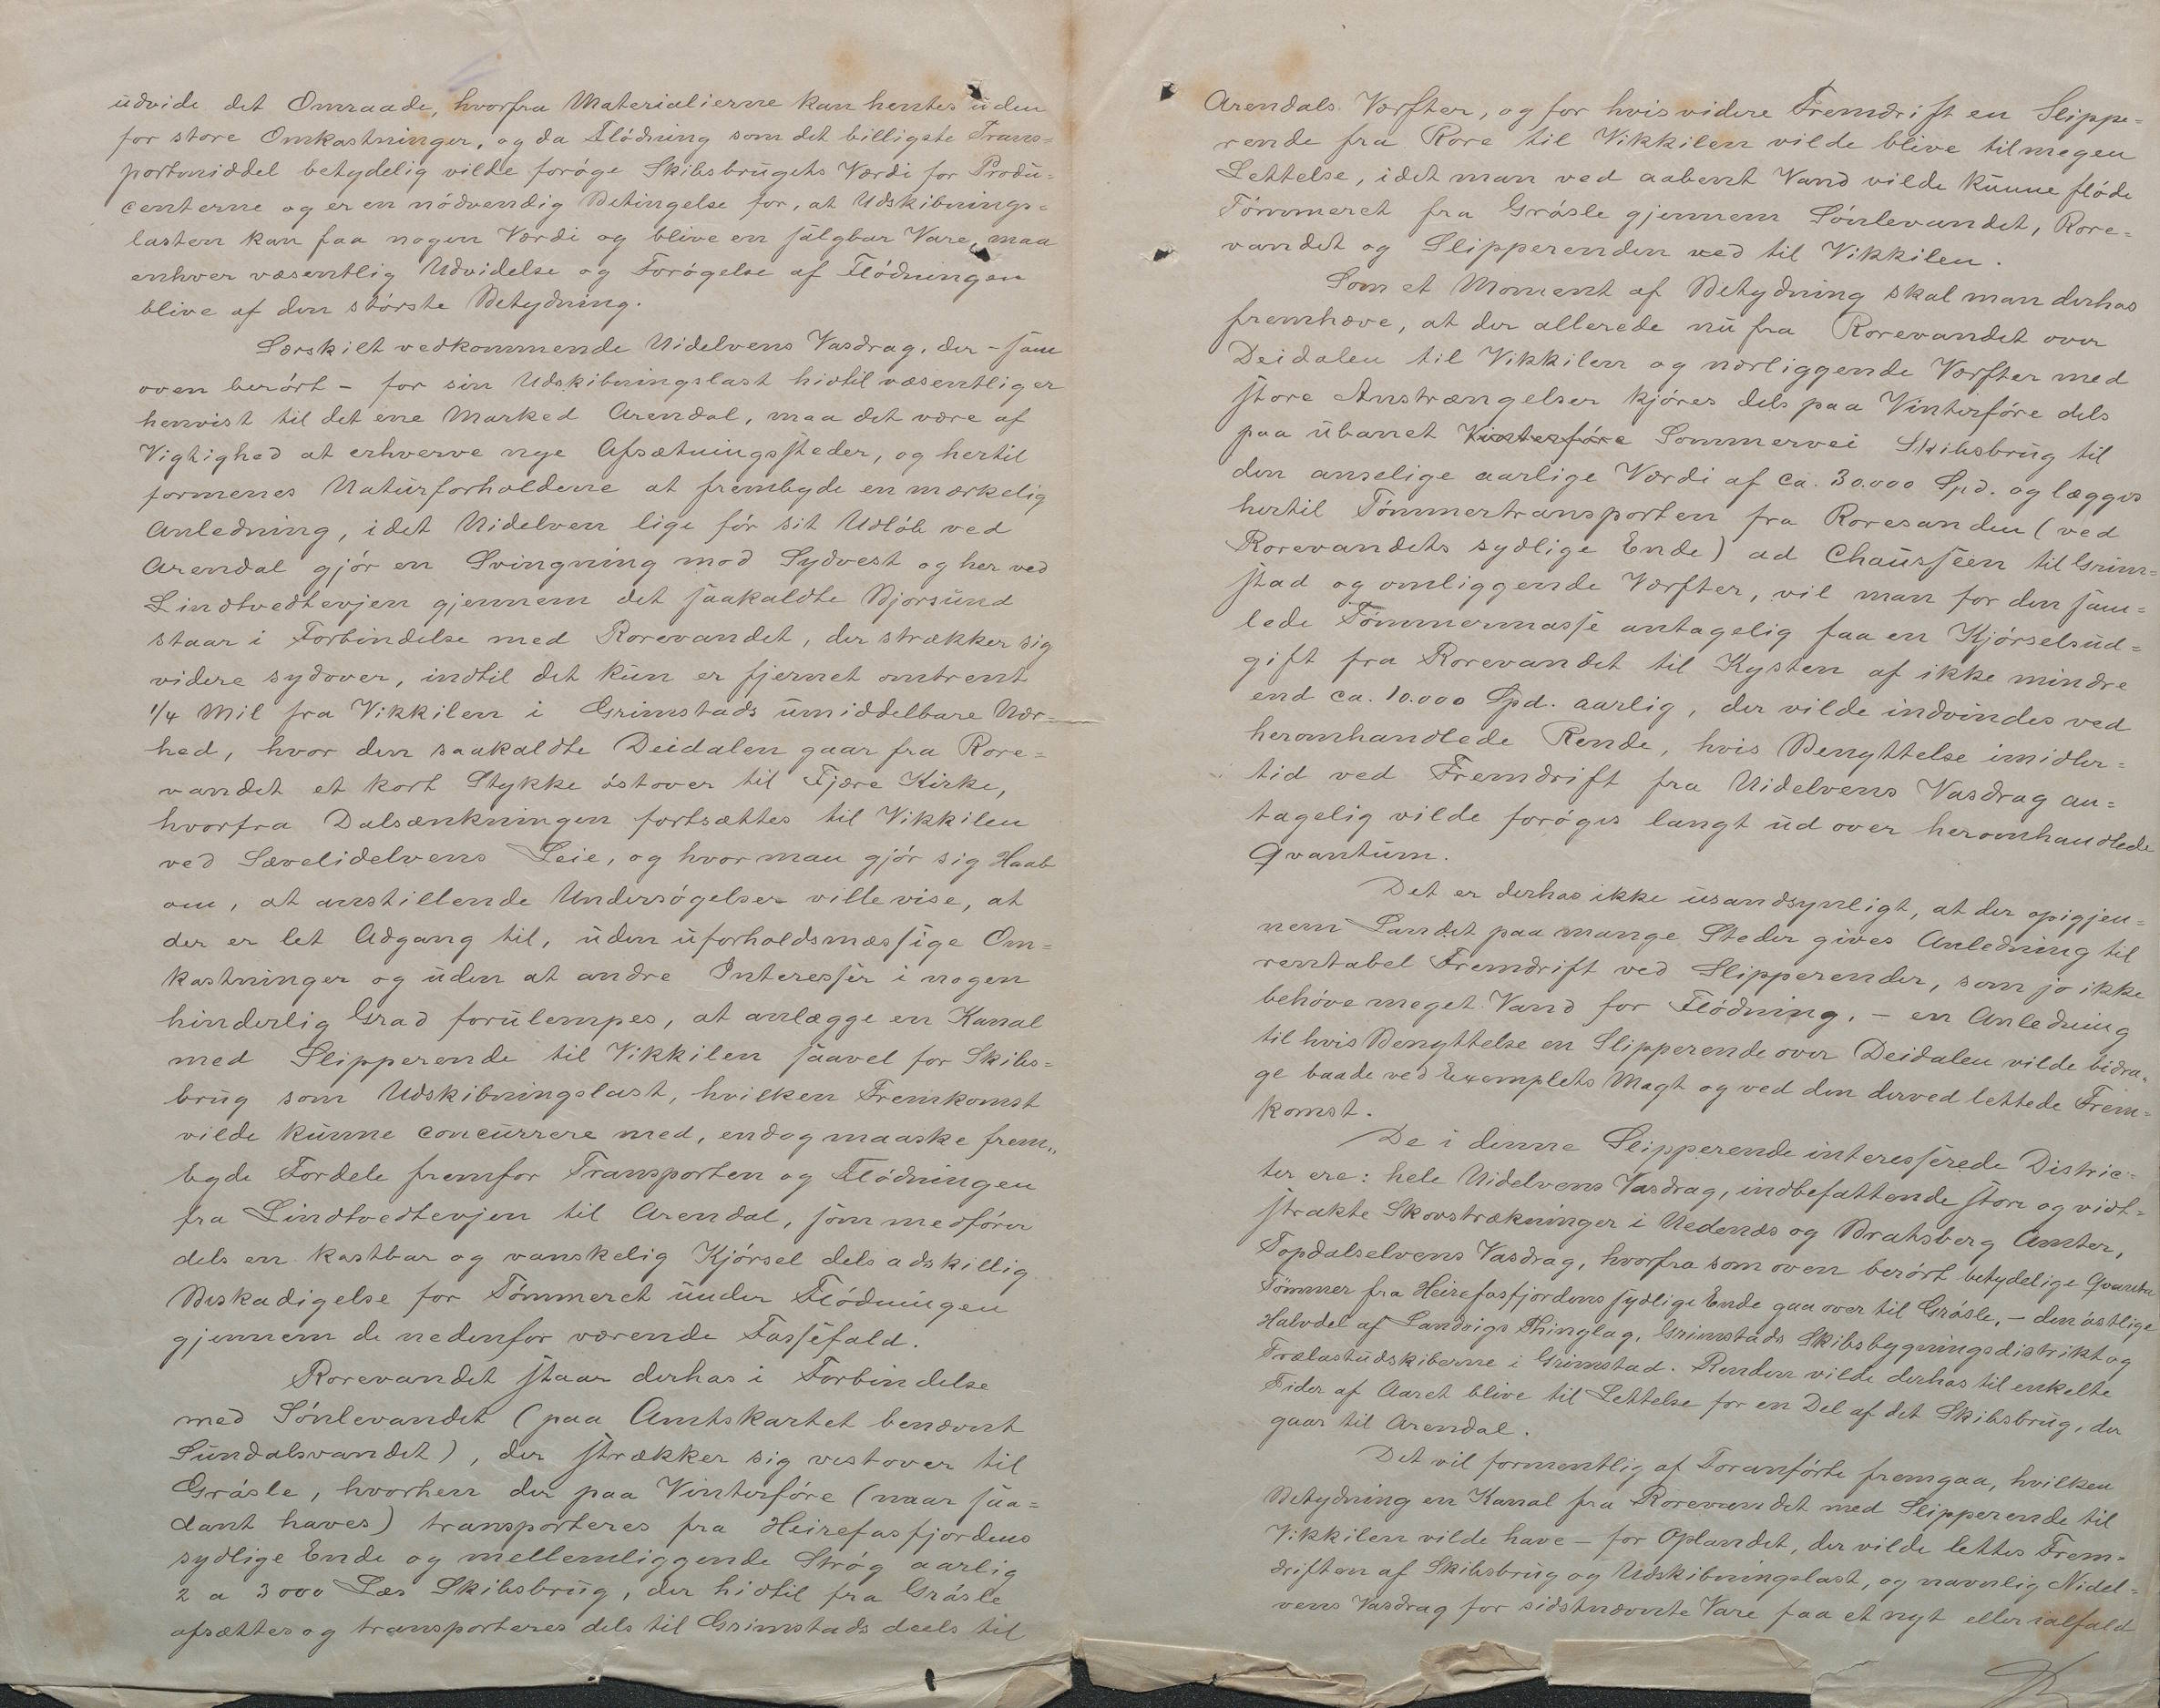 udvide det Omraade, hvorfra Materialierne kan hentes uden
for store Omkastninger, og da Flódning som det billigste Trans=
portmiddel betydelig vilde forøge Skibsbrugets Værdi for Produ=
centerne og er en nódvendig Betingelse for, at Udskibnings=
lasten kan faa nogen Værdi og blive en sælgbar Vare, maa
enhver væsentlig Udvidelse og Forógelse af Flódningen
blive af den stórste Betydning.
Særskilt vedkommende Nidelvens Vasdrag, der - som
oven berórt - for sin Udskibningslast hidtil væsentlig er
henvist til det ene Marked Arendal, maa det være af
Vigtighed at erhverve nye Afsætningssteder, og hertil
formenes Naturforholdene at frembyde en mærkelig
Anledning, idet Nidelven lige fór sit Udlób ved
Arendal gjór en Svingning mod Sydvest og her ved
Lindtvedtevjen gjennem det saakaldte Bjorsund
staar i Forbindelse med Rorevandet, der strækker sig
videre sydover, indtil det kun er fjernet omtrent
1/4 Mil fra Vikkilen i Grimstads umiddelbare Nær=
hed, hvor den saakaldte Deidalen gaar fra Rore=
vandet et kort Stykke óstover til Fjære Kirke,
hvorfra Dalsænkningen fortsættes til Vikkilen
ved Sævelidelvens Leie, og hvor man gjór sig Haab
om, at anstillende Undersógelser ville vise, at
der er let Adgang til, uden uforholdsmæssige Om=
kastninger og uden at andre Interesser i nogen
hinderlig Grad forulempes, at anlægge en Kanal
med Slipperende til Vikkilen saavel for Skibs=
brug som Udskibningslast, hvilken Fremkomst
vilde kunne concurrere med, endog maaske frem"
byde Fordele fremfor Transporten og Flódningen
fra Lindtvedtevjen til Arendal, som medfórer
dels en kostbar og vanskelig Kjórsel dels adskillig
Beskadigelse for Tómmeret under Flódningen
gjennem de nedenfor værende Fossefald.
Rorevandet staar derhos i Forbindelse
med Sónlevandet (paa Amtskartet benævnt
Sundalsvandet), der strækker sig vestover til
Grásle, hvorhen der paa Vinterfóre (naar saa=
dant haves) transporteres fra Heirefosfjordens
sydlige Ende og mellemliggende Stróg aarlig
2 a 3000 Læs Skibsbrug, der hidtil fra Grásle
afsættes og transporteres dels til Grimstads deels til
Arendals Værfter, og for hvis videre Fremdrift en Slippe=
rende fra Rore til Vikkilen vilde blive til megen
Lettelse, idet man ved aabent Vand vilde kunne flóde
Tómmeret fra Grásle gjennem Sónlevandet, Rore=
vandet og Slipperenden ved til Vikkilen.
Som et Moment af Betydning skal man derhos
fremhæve, at der allerede nu fra Rorevandet over
Deidalen til Vikkilen og nærliggende Værfter med
store Anstrængelser kjóres dels paa Vinterfóre dels
paa ubanet Vinterfóre Sommervei Skibsbrug til
den anselige aarlige Værdi af ca. 30.000 Spd. og lægges
hertil Tómmertransporten fra Roresanden (ved
Rorevandets sydlige Ende) ad Chausséen til Grim=
stad og omliggende Værfter, vil man for den sam=
lede Tómmermasse antagelig faa en Kjórselsud=
gift fra Rorevandet til Kysten af ikke mindre
end ca. 10.000 Spd. aarlig, der vilde indvindes ved
heromhandlede Rende, hvis Benyttelse imidler=
tid ved Fremdrift fra Nidelvens Vasdrag an=
tagelig vilde foróges langt ud over heromhandlede
Qvantum.
Det er derhos ikke usandsynligt, at der opigjen=
nem Landet paa mange Steder gives Anledning til
rentabel Fremdrift ved Slipperender, som jo ikke
behóve meget Vand for Flódning, - en Anledning
til hvis Benyttelse en Slipperende over Deidalen vilde bidra"
ge baade ved Exemplets Magt og ved den derved lettede Frem=
komst.
De i denne Slipperende interesserede Distric=
ter ere: hele Nidelvens Vasdrag, indbefattende store og vidt=
strakte Skovstrækninger i Nedenæs og Bratsberg Amter,
Topdalselvens Vasdrag, hvorfra som oven berórt betydelige Qvanta
Tömmer fra Heirefosfjordens sydlige Ende gaa over til Grásle, - den óstlige
Halvdel af Landvigs Thinglag, Grimstads Skibsbygningsdistrikt og
Trælastudskiberne i Grimstad. Renden vilde derhos til enkelte
Tider af Aaret blive til Lettelse for en Del af det Skibsbrug, der
gaar til Arendal.
Det vil formentlig af Foranfórte fremgaa, hvilken
Betydning en Kanal fra Rorevandet med Slipperende til
Vikkilen vilde have - for Oplandet, der vilde lettes Frem=
driften af Skibsbrug og Udskibningslast, og navnlig Nidel=
vens Vasdrag for sidstnævnte Vare faa et nyt eller ialfald